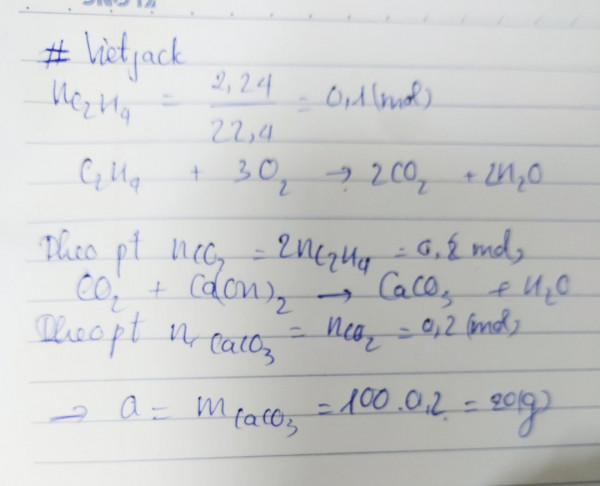 # Vietjack
nC₂H₄ = 2,24 / 22,4 = 0,1 (mol)
C₂H₄ + 3O₂ → 2CO₂ + 2H₂O
Theo pt nCO₂ = 2nC₂H₄ = 0,2 mol
CO₂ + Ca(OH)₂ → CaCO₃ + H₂O
Theo pt n CaCO₃ = nCO₂ = 0,2 (mol)
→ a = m CaCO₃ = 100.0,2 = 20(g)